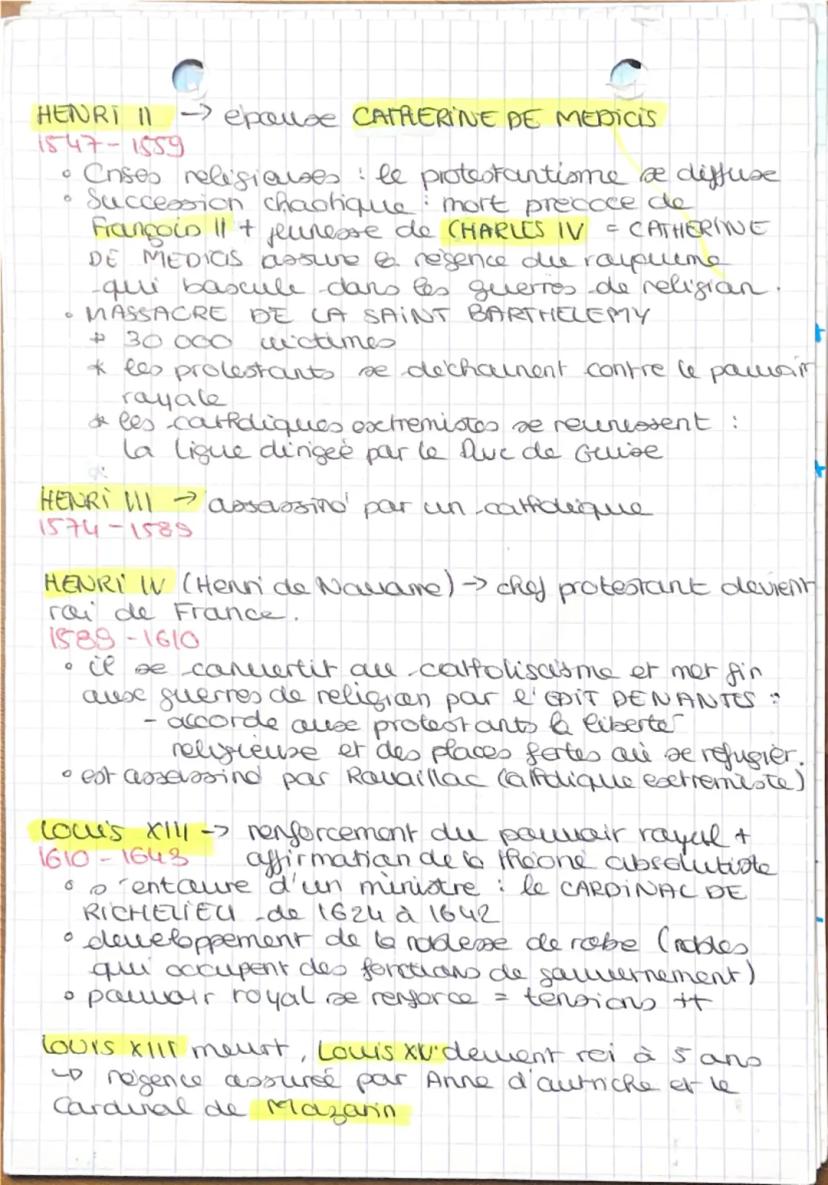 HENRI II → epouse CATHERINE DE MEDICIS
1547 - 1559
• Crises religieuses : le protestantisme se diffuse
• Succession chaotique : mort precoce de
François II + jeunesse de CHARLES IV = CATHERINE
DE MEDICIS assure la régence du royaume
qui bascule dans les guerres de religion.
• MASSACRE DE LA SAINT BARTHELEMY
* 30 000 victimes
* les protestants se déchainent contre le pouvoir
royale
* les catholiques extremistes se reunissent :
la ligue dirigée par le Duc de Guise
HENRI III → assassiné par un catholique
1574 - 1589
HENRI IV (Henri de Navarre) → chef protestant devient
roi de France.
1589 - 1610
• il se convertit au catholisisme et met fin
aux guerres de religion par l'EDIT DE NANTES :
- accorde aux protestants la liberté
religieuse et des places fortes où se réfugier.
• est assassiné par Ravaillac (catholique extremiste)
LOUIS XIII → renforcement du pouvoir royal +
1610 - 1643 affirmation de la théorie absolutiste
• s'entoure d'un ministre : le CARDINAL DE
RICHELIEU de 1624 à 1642
• developpement de la noblesse de robe (nobles
qui occupent des fonctions de gouvernement)
• pouvoir royal se renforce = tensions ++
LOUIS XIII meurt, Louis XIV devient roi à 5 ans
↳ régence assurée par Anne d'autriche et le
Cardinal de Mazarin